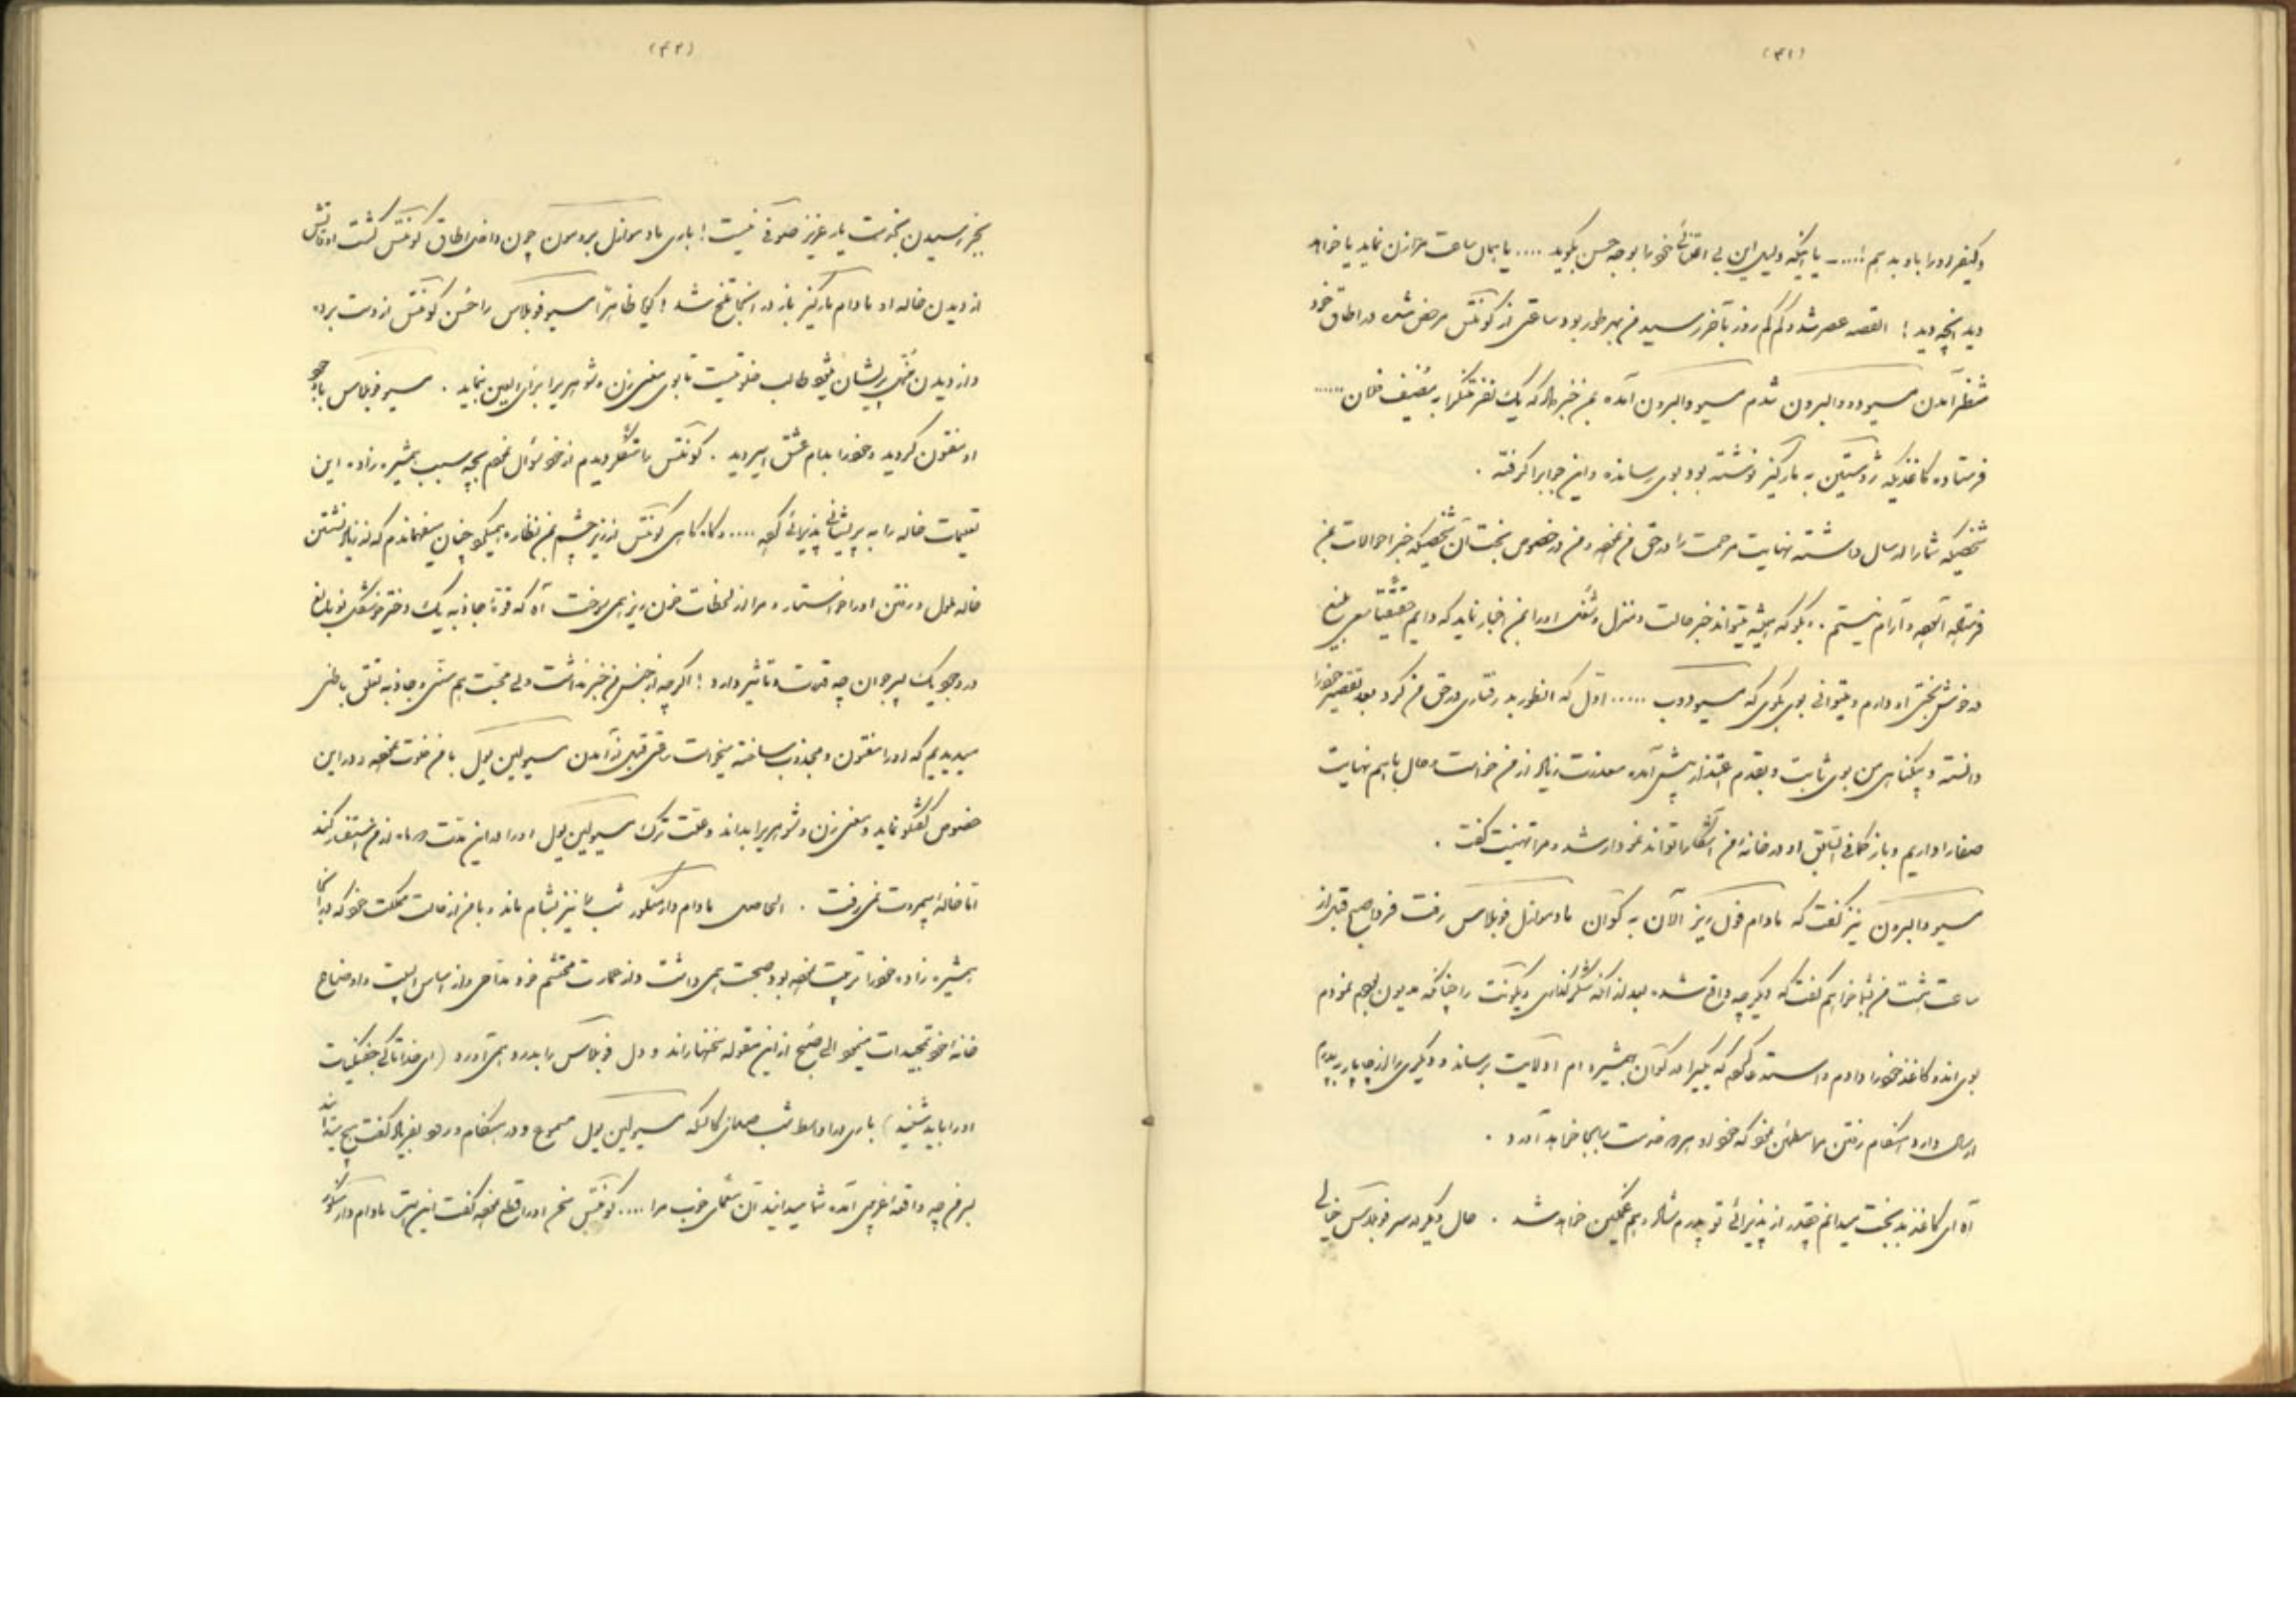 (۴۱)
و کیفر او را باو بدهم !.... یا اینکه دلیل این بی اعتنائی خود را بوجه حسن بگوید .... یا بهمان ساعت مرا زن نماید یا خواهد
دید آنچه دید ! القصه عصر شد و کم کم روز بآخر رسید من بهر طور بود ساعتی از کونتس مرخص شده در اطاق خود
منتظر آمدن مسیو دووالبرون شدم مسیو والبرون آمده بمن خبر داد که یک نفر
فرستاده کاغذیکه ژوستین به مارکیز نوشته بود بوی رسانده و این جوابرا گرفته .
شخصیکه شما را ارسال داشته نهایت مرحمت را در حق من نموده و من در خصوص بخت آن شخصیکه خبر احوالات بمن
آرام نیستم . بگو که همیشه میتواند خبر حالت و منزل و شغل او را بمن اخبار نماید که دایم حقیقتا
در خوش بختی او دارم و میتوانی بوی بگوی که مسیو دوب ..... اوّل که انطور بد رفتاری در حق من کرد بعد تقصیر خود را
دانسته و بیگناهی من بوی ثابت و بقدم اعتذار پیش آمده معذرت زیاد از من خواست و حال باهم نهایت
صفا را داریم و باز کمافی السابق او در خانه من آشکارا تواند نمودار شد و مرا تهنیت گفت .
مسیو والبرون نیز گفت که مادام فول ریز الآن به کوان مادموازل فوبلاس رفت فردا صبح قبل از
ساعت هشت من بشما خواهم گفت که دیگر چه واقع شده بعد از آنکه شکرگذاری ویکونت را چنانکه مدیون بودم نمودم
بوی اندو کاغذ خود را دادم و استدعا کردم که یکی را در کوان بهمشیره ام ادلایت برساند و دیگری را از چاپار بپدرم
ارسال دارد هنگام رفتن مرا مطمئن نمود که خود او هر دو خدمت را بجا خواهد آورد .
آه ای کاغذ بدبخت میدانم چقدر از پذیرائی تو پدرم شاد و هم غمگین خواهد شد . حال دیگر در سر فوبلاس خیالی
(۴۲)
بجز رسیدن بخدمت یار عزیز صوفی نیست ! باری مادموازل برومون چون داخل اطاق کونتس گشت اوقاتش
از دیدن خاله او مادام مارکیز باز در انجا تلخ شد ! گویا ظاهراً مسیو فوبلاس را حُسن کونتس از دست برده
و از دیدن پریشان میشود طالب خلوتیست تا بوی معنی زن و شوهریرا برای العین بنماید . مسیو فوبلاس باوجود
او مفتون کردید و خود را بدام عشق اسیر دید . کونتس را متفکر دیدم از خود سؤال نمودم بچه سبب همشیره زاده این
تعلیمات خاله را به پریشانی پذیرائی نمود .... و گاه گاهی کونتس از زیر چشم بمن نظاره میکرد چنان میفهماندم که از زیاد نشستن
خاله ملول و رفتن او را خواستار و مرا از لحظات خون ریز همی سوخت آه که قوّهٔ جاذبه یک دختر خوشگل نوبالغ
در وجود یک پسر جوان چه قدرت و تأثیر دارد ! اگرچه از جنس من خبر نداشت ولی محبّت بهم سنّی و جاذبه تعلّق باطنی
میدیدیم که او را مفتون و مجذوب ساخته میخواست وقتی قبل از آمدن مسیو لین یول با من خلوت نموده و در این
خصوص گفتگو نماید و معنی زن و شوهریرا بداند و علّت ترک مسیو لین یول او را در این مدّت دو ماه از من استفسار کند
امّا خالهٔ بیمروت نمی رفت . الحاصل مادام دارمنکور شب را نیز بشام ماند و با من از حالت مملکت خود که در آنجا
همشیره زاده خود را تربیت نموده بود صحبت همی داشت و از عمارت محتشم خود مدّاحی و از اساس البیت و اوضاع
خانه خود تمجیدات مینمود الی صبح از این مقوله سخنها راند و دل فوبلاس را بدرد همی آورد (ای خدا تا کی
او را باید شنید) باری در اواسط شب صدای کالسکه مسیو لین یول مسموع و در هنگام ورود بفریاد گفت هیچ میدانید
بر من چه واقعهٔ غریبی آمده شما میدانید آن معمای خوب مرا .... کونتس سخن او را قطع نموده گفت این است مادام دارمنکور